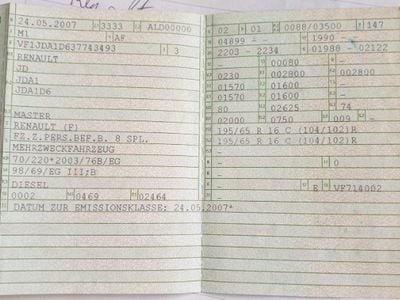 24.05.2007 3333 ALD00000
M1 AF
VF1JDA1D637743493 3
RENAULT
JD
JDA1
JDA1D6
MASTER
RENAULT (F)
FZ.Z.PERS.BEF.B. 8 SPL.
MEHRZWECKFAHRZEUG
70/220*2003/76B/EG
98/69/EG III;B
DIESEL
0002 0469 02464
DATUM ZUR EMISSIONSKLASSE: 24.05.2007*
02 01 0088/03500 147
04899 - 1990 -
2203 - 2234 01980 - 02122
- 00080 -
0230 002800 002800
01570 01600 -
01570 01600 -
80 02625 74
02000 0750 009 -
195/65 R 16 C (104/102)R
195/65 R 16 C (104/102)R
-
- 0
-
- E VF714002